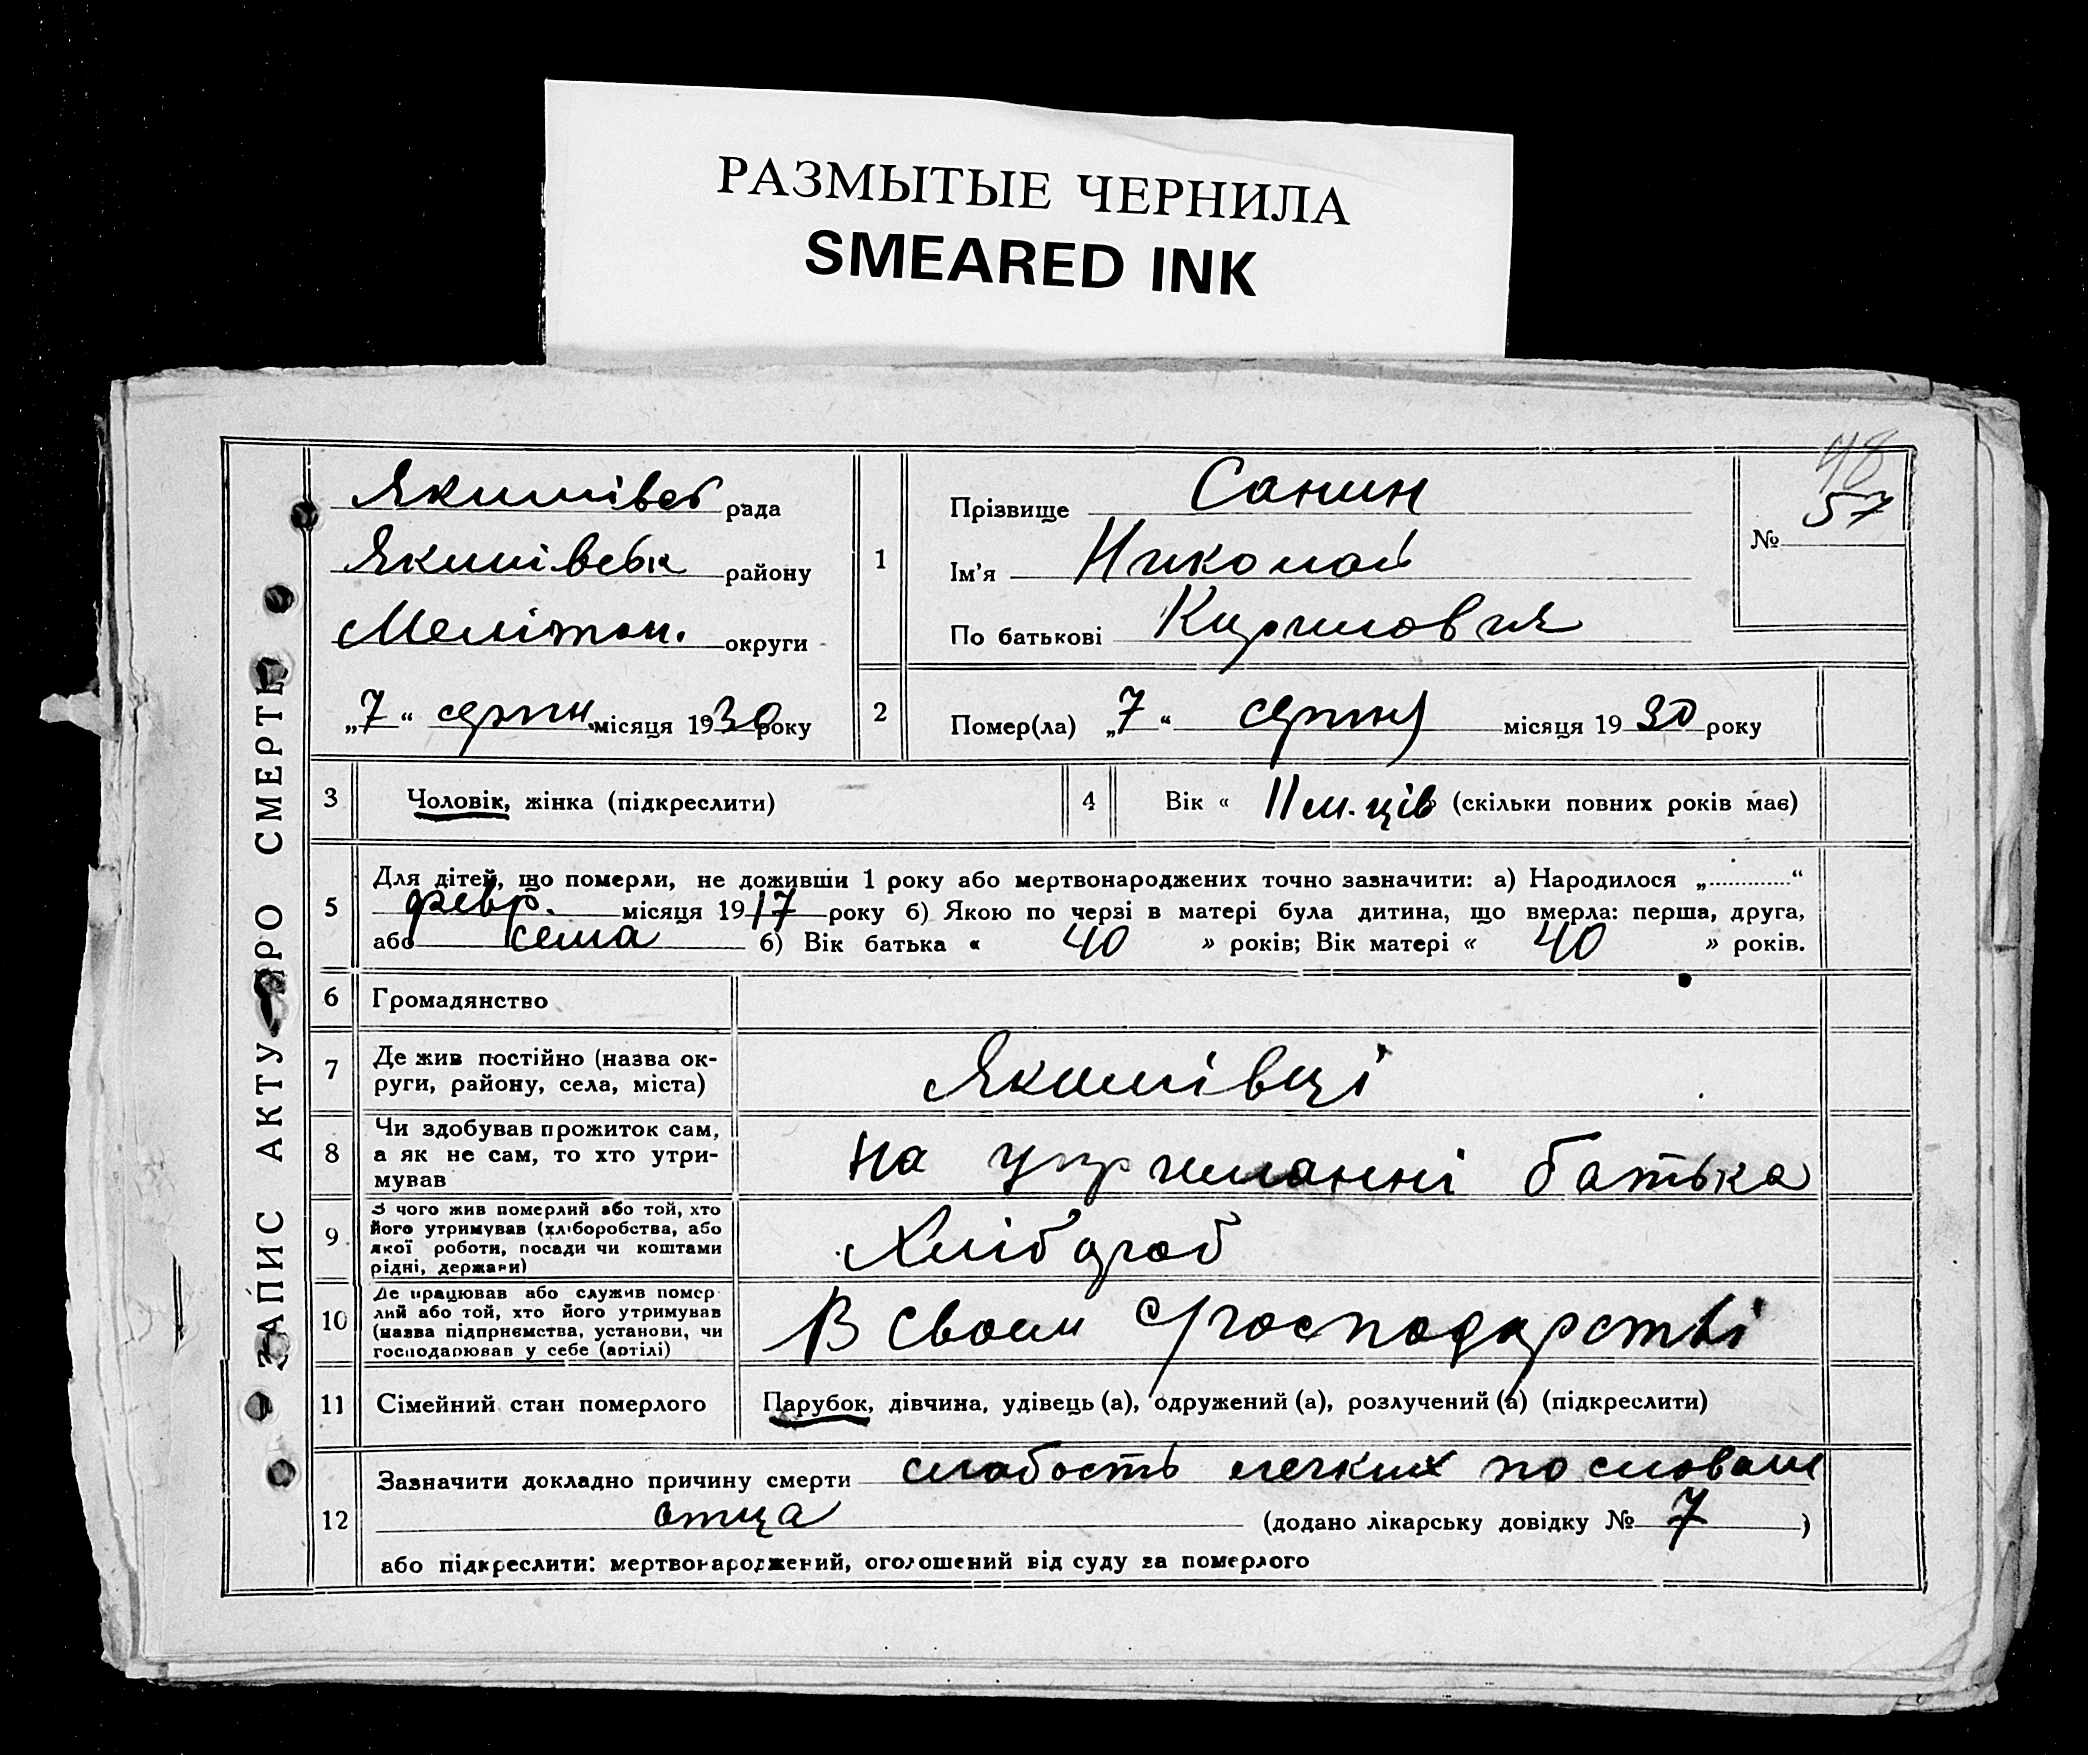 РАЗМЫТЫЕ ЧЕРНИЛА
SMEARED INK
ЗАПИС АКТУ ПРО СМЕРТЬ
Якимівсь рада
Якимівськ району
Мелітоп. округи
„7“ серпн. місяця 1930 року
1
Прізвище Санин
Ім'я Николай
По батькові Кирилович
№ 48
57
2
Помер(ла) „7“ серпня місяця 1930 року
3
Чоловік, жінка (підкреслити)
4
Вік « 11 м-ців » (скільки повних років має)
5
Для дітей, що померли, не доживши 1 року або мертвонароджених точно зазначити: а) Народилося „............“
февр. місяця 1917 року б) Якою по черзі в матері була дитина, що вмерла: перша, друга,
або сема б) Вік батька « 40 » років; Вік матері « 40 » років.
6
Громадянство
7
Де жив постійно (назва ок-
руги, району, села, міста)
Якимівці
8
Чи здобував прожиток сам,
а як не сам, то хто утри-
мував
на утриманні батька
9
З чого жив померлий або той, хто
його утримував (хліборобства, або
якої роботи, посади чи коштами
рідні, держави)
Хлібороб
10
Де працював або служив помер-
лий або той, хто його утримував
(назва підприємства, установи, чи
господарював у себе (артілі)
В своем господарстві
11
Сімейний стан померлого
Парубок, дівчина, удівець (а), одружений (а), розлучений (а) (підкреслити)
12
Зазначити докладно причину смерти слабость легких по словам
отца (додано лікарську довідку № 7)
або підкреслити: мертвонароджений, оголошений від суду за померлого